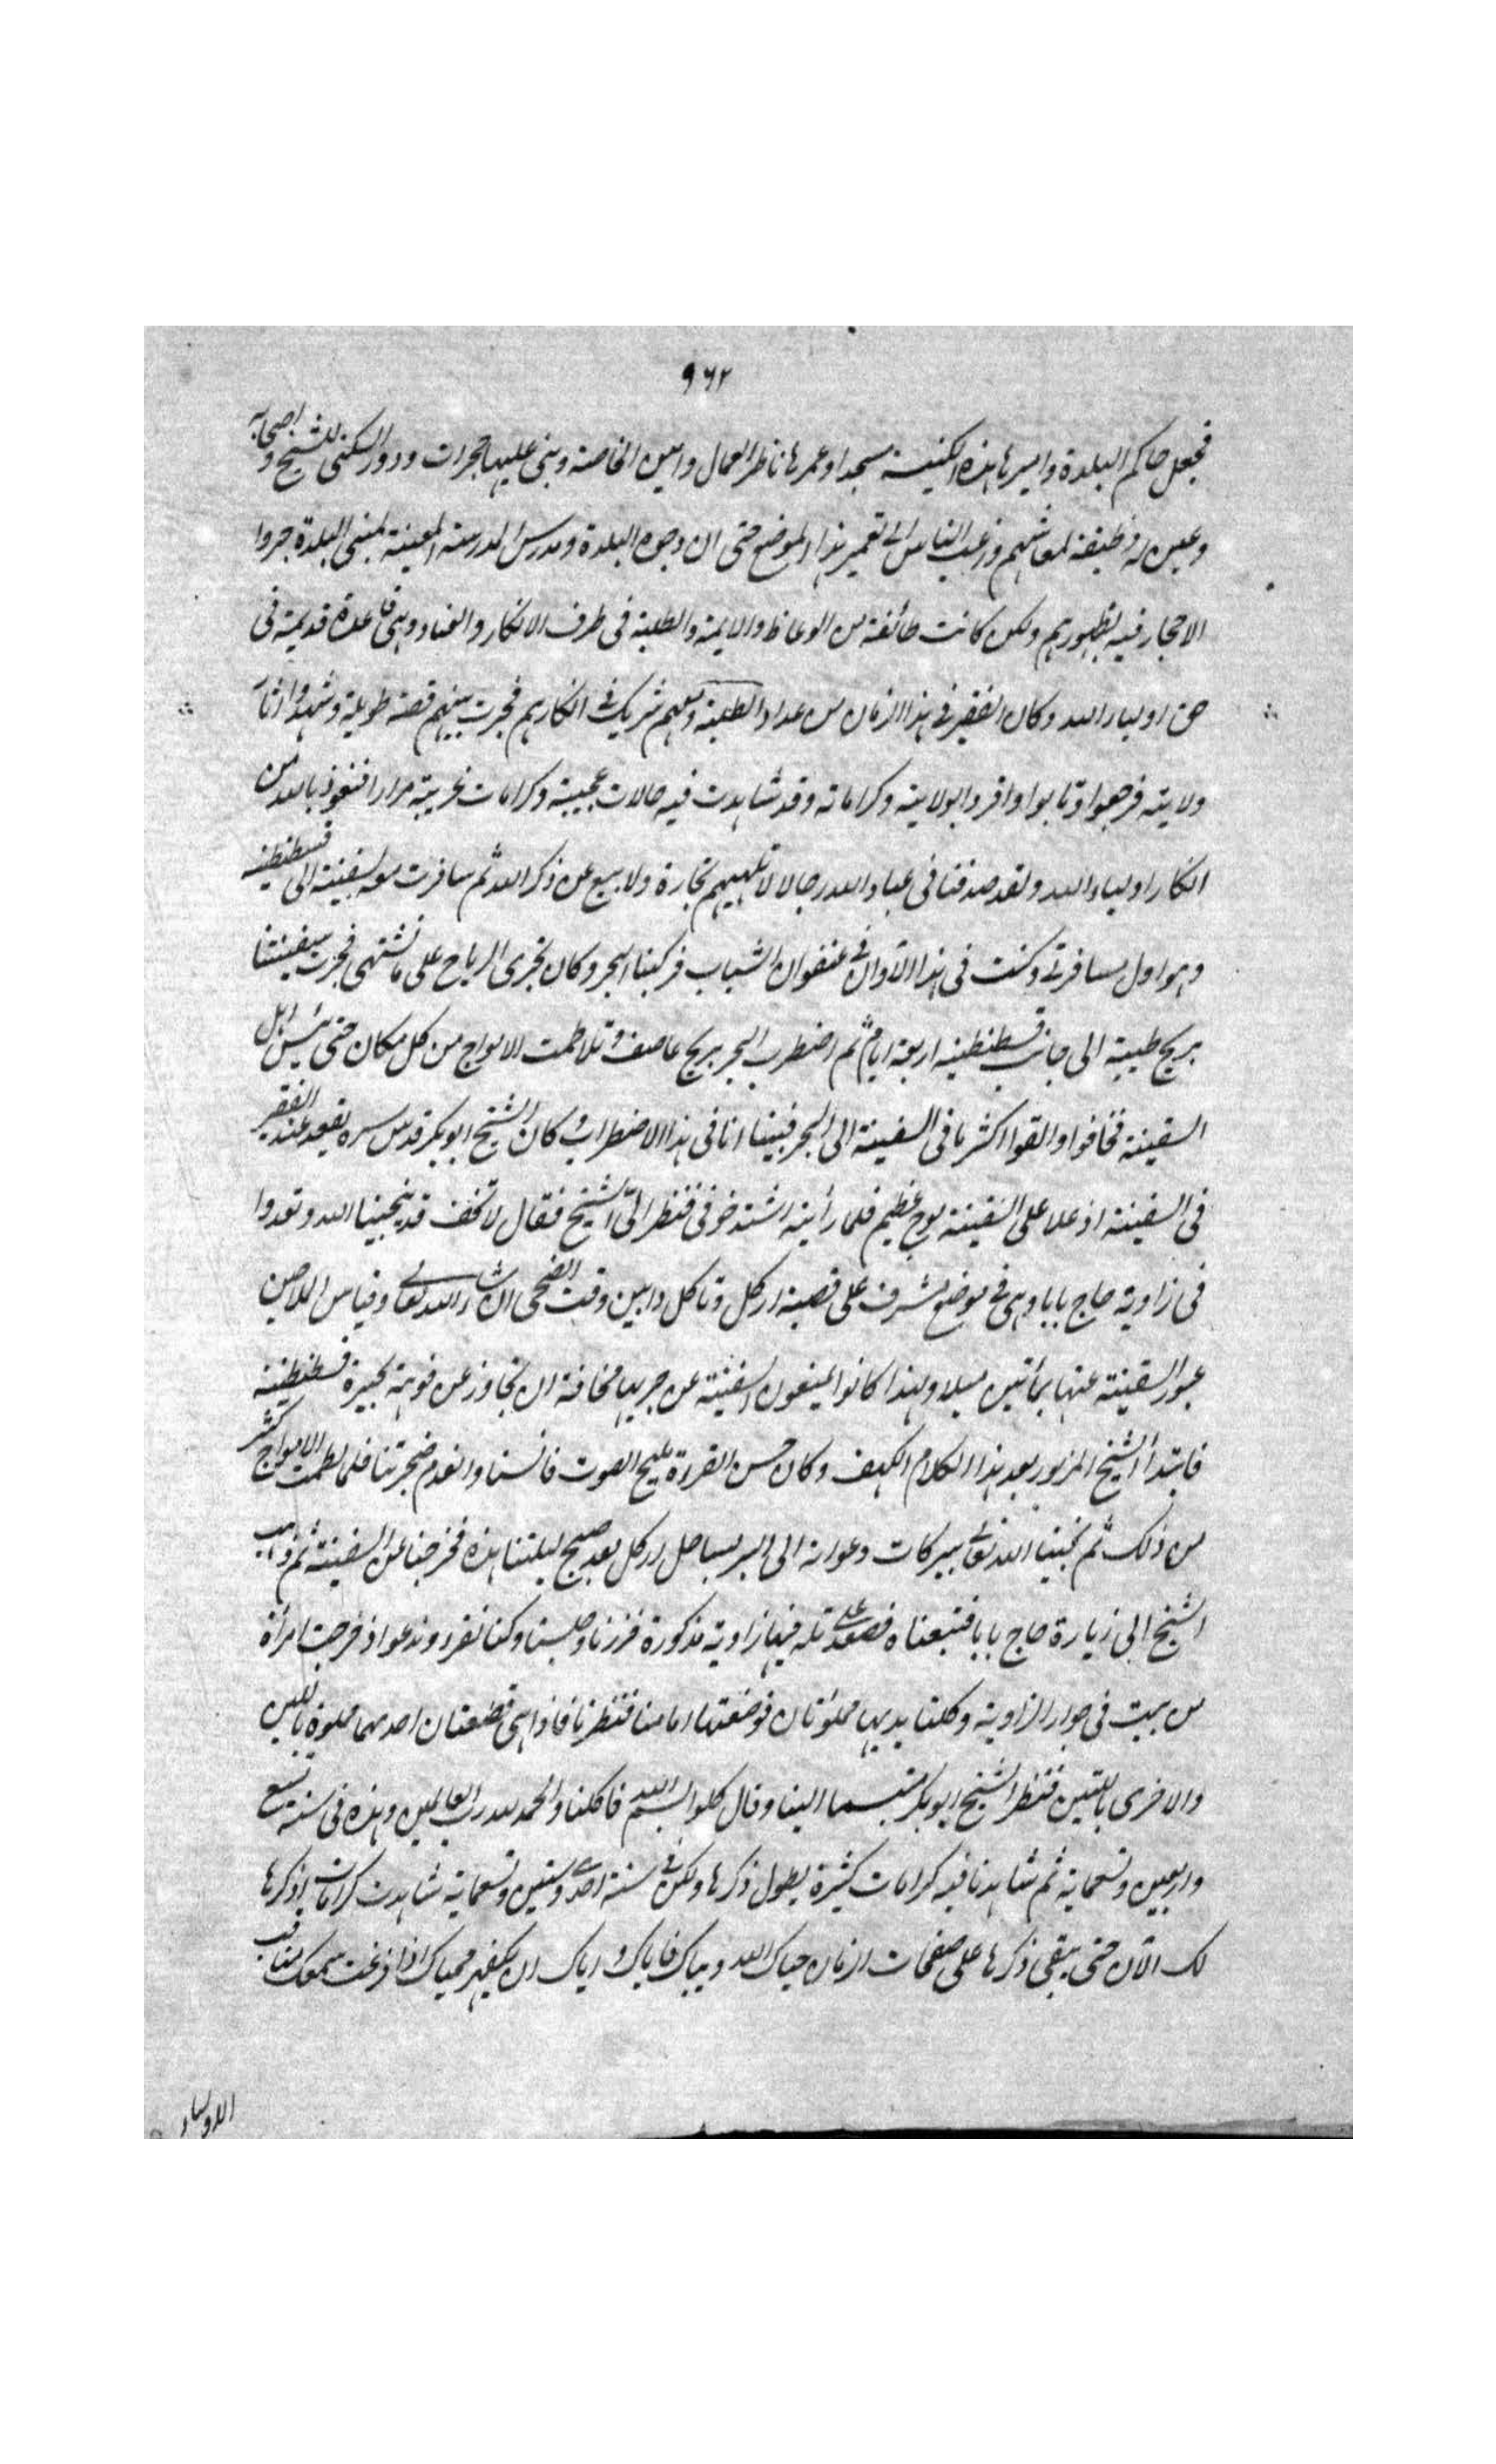 ٩٦٢
فجعل حاكم البلدة واميرها هذه الكنيسة مسجدا وعمرها ناظر العمال وامين الخاصة وبنى عليها حجرات ودور السكنى للشيخ واصحابه
وعين له وظيفة لمعاشهم ورغب الناس الى تعمير هذا الموضع حتى ان وجوه البلدة ومدرس المدرسة المعينة لمفتى البلدة جروا
الاحجار فيه بظهورهم ولكن كانت طائفة من الوعاظ والايمة والطلبة فى طرف الانكار والعناد وهى قاعدة قديمة فى
حق اولياء الله وكان الفقير فى هذا الزمان من عداد الطلبة ومعهم شريك فى انكارهم فجرت بينهم قصة طويلة وشهدوا اثار
ولايته فرجعوا وتابوا واقروا بولايته وكراماته وقد شاهدت فيه حالات عجيبة وكرامات غريبة مرارا فنعوذ بالله من
انكار اولياء الله ولقد صدقنا فى عباد الله رجالا لا تلهيهم تجارة ولا بيع عن ذكر الله ثم سافرت معه بسفينة الى قسطنطنية
وهو اول مسافرتى وكنت فى هذا الآوان فى عنفوان الشباب فركبنا البحر وكان تجرى الرياح على ما نشتهى فجرت سفينتنا
بريح طيبة الى جانب قسطنطنية اربعة ايام ثم اضطرب البحر بريح عاصف وتلاطمت الامواج من كل مكان حتى يئس اهل
السفينة فخافوا والقوا اكثر ما فى السفينة الى البحر فبينا انا فى هذا الاضطراب وكان الشيخ ابو بكر قدس سره يقعد عند الفقير
فى السفينة اذ علا على السفينة موج عظيم فلما رأيته اشتد خوفى فنظر الىّ الشيخ فقال لا تخف قد ينجينا الله وتغدوا
فى زاوية حاج بابا وهى فى موضع يشرف على قصبة اركل وتاكل دامين وقت الضحى ان شاء الله تعالى وقياس الملاحين
عبور السفينة عنها بمأتين ميلا ولهذا كانوا يمنعون السفينة عن جريها مخافة ان تجاوز عن فوهة بحيرة قسطنطنية
فابتدأ الشيخ المزبور بعد هذا الكلام الكهف وكان حسن القراءة مليح الصوت فانسنا وانعدم ضجرتنا فلما لطمت الامواج كثر
من ذلك ثم نجينا الله تعالى ببركات دعوانه الى البر بساحل اركل بعد صبح ليلتنا هذه فخرجنا عن السفينة ثم ذهب
الشيخ الى زيارة حاج بابا فتبعناه فصعد على تله فيها زاوية مذكورة فزرنا وجلسنا وكنا نقرء وندعو اذ خرجت امرأة
من بيت فى جوار الزاوية وكلتا يديها مملوئتان فوضعتها امامنا فنظرنا فاذا هى قصعتان احديهما مملوة باللبن
والاخرى بالتين فنظر الشيخ ابو بكر متبسما الينا وقال كلوا بسم الله فاكلنا والحمد لله رب العالمين وهذه فى سنة تسع
واربعين وتسعماية ثم شاهدنا فيه كرامات كثيرة يطول ذكرها ولكن فى سنة احدى وستين وتسعماية شاهدت كرامات اذكرها
لك الآن حتى يبقى ذكرها على صفحات الزمان حياك الله وبياك فاياك واياك ان يكفهر محياك اذا قرعت سمعك مناقب
الاولياء